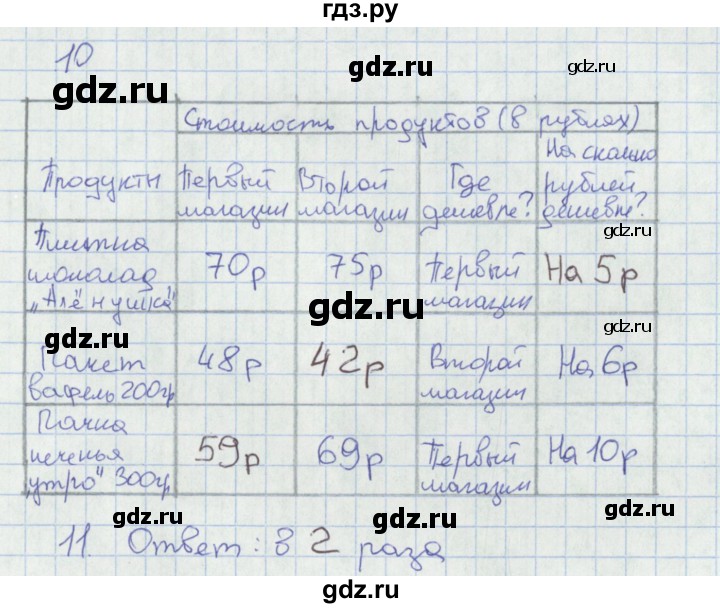 гдз.ру
10
gdz.ru gdz.ru gdz.ru
Стоимость продуктов (в рублях)
Продукты Первый магазин Второй магазин Где дешевле? На сколько рублей дешевле?
gdz.ru
Плитка шоколад „Алёнушка" 70р 75р Первый магазин На 5р
gdz.ru
gdz.ru gdz.ru
Пакет вафель 200гр 48р 42р Второй магазин На 6р
Пачка печенья „утро" 300гр 59р 69р Первый магазин На 10р
gdz.ru
gdz.ru gdz.ru
11. Ответ: в 2 раза
gdz.ru